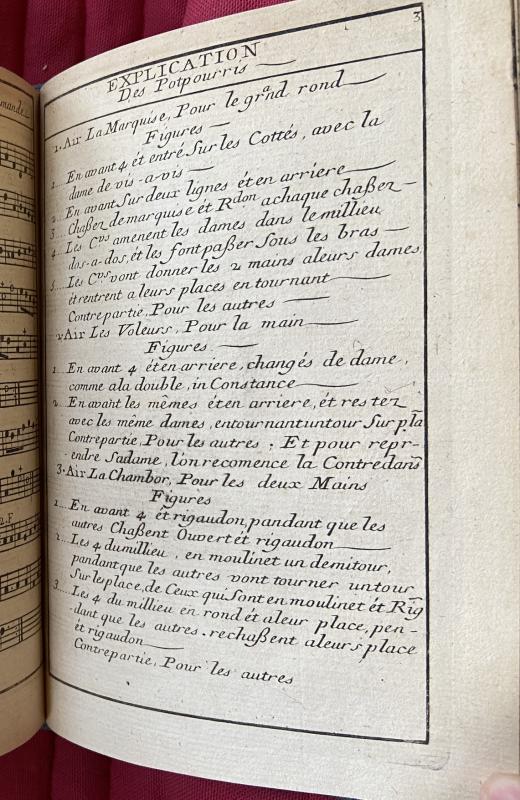 mande
3
EXPLICATION
Des Potpourris
1. Air La Marquise, Pour le grand rond
Figures
1... En avant 4 ét entré Sur les Cottés, avec la
dame de vis-a-vis
2... En avant Sur deux lignes ét en arriere
3... Chaßez demarquise ét Rdon achaque chaßez
4... Les Cvs amenent les dames dans le millieu
dos-a-dos, ét les font paßer Sous les bras
5... Les Cvs vont donner les 2 mains aleurs dames
ét rentrent a leurs places en tournant
Contrepartie, Pour les autres
2. Air Les Voleurs, Pour la main
Figures.
1... En avant 4 ét en arriere, changés de dame,
comme ala double, in Constance
2... En avant les mêmes ét en arriere, ét restez
avec les même dames, entournant untour Sur pla
Contrepartie Pour les autres. Et pour repr-
-endre Sadame, l'on recomence la Contredans
3. Air La Chambor, Pour les deux Mains
Figures
1... En avant 4 ét rigaudon, pandant que les
autres Chaßent Ouvert ét rigaudon
2... Les 4 du milieu, en moulinet un demitour,
pandant que les autres vont tourner untour
Sur les place, de Ceux qui Sont en moulinet ét Rig
3.... Les 4 du millieu en rond ét aleur place, pen-
-dant que les autres. rechaßent aleurs place
ét rigaudon
Contrepartie, Pour les autres
2.F